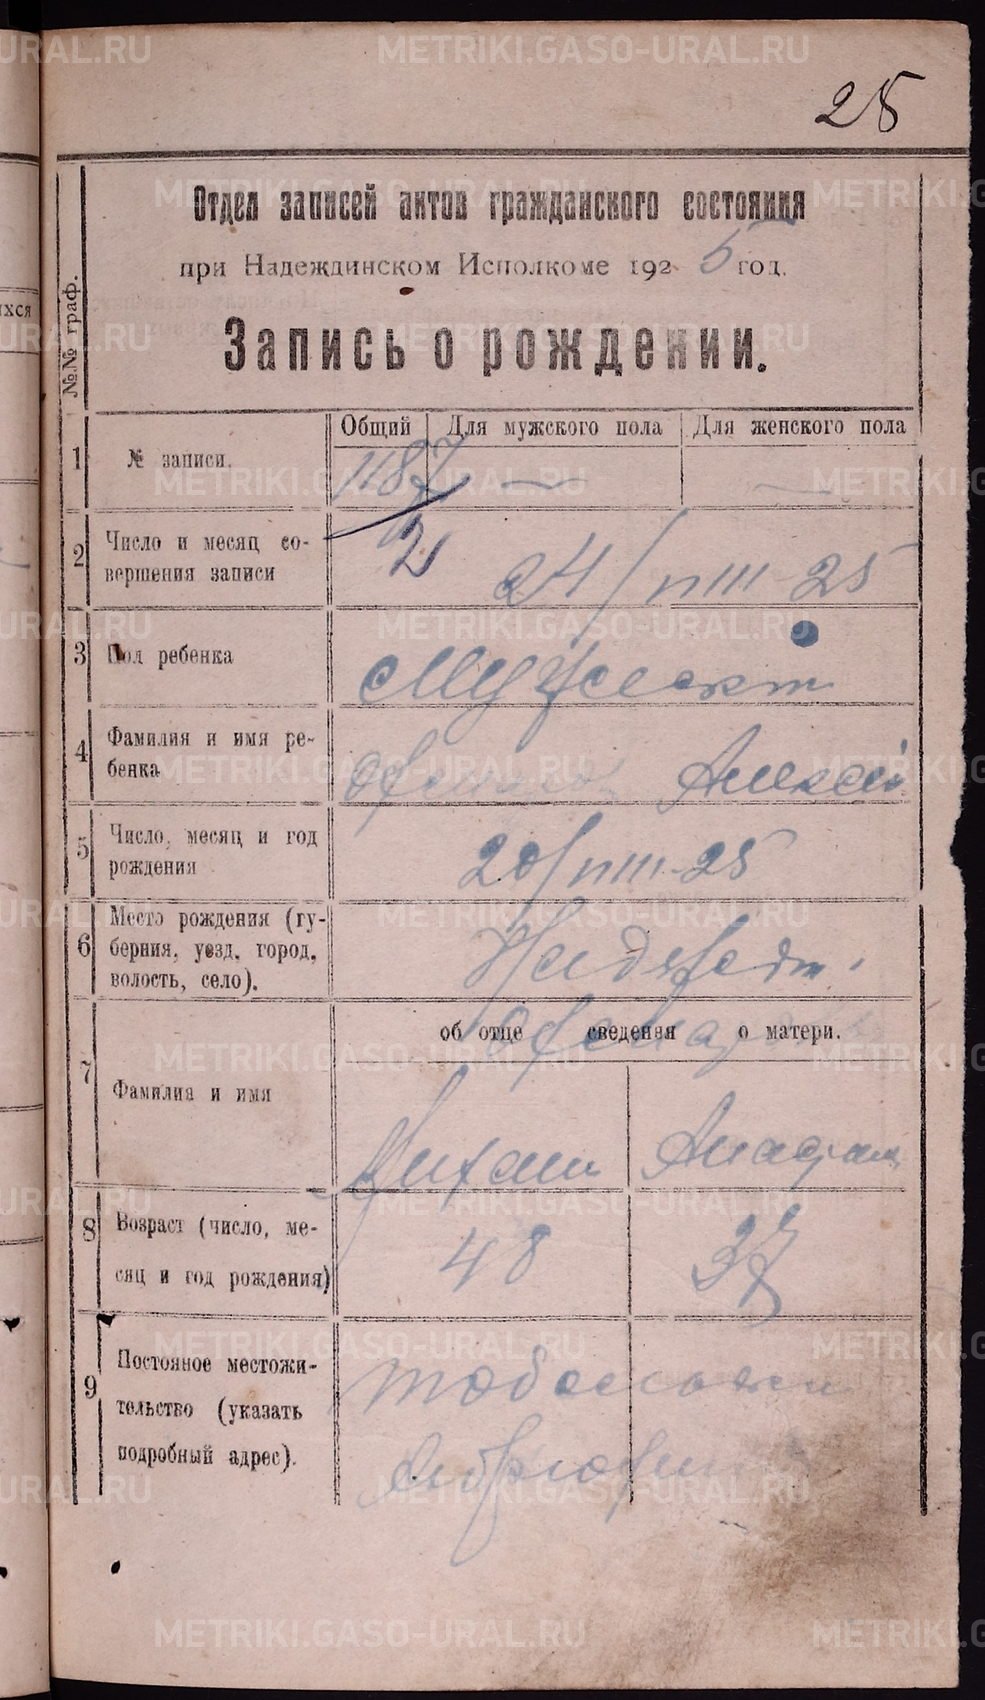 25
Отдел записей актов гражданского состояния
при Надеждинском Исполкоме 1925 год.
Запись о рождении.
№№ граф.
Общий Для мужского пола Для женского пола
1 № записи. 1187 — —
2 Число и месяц со-
вершения записи
24/VIII 25
3 Пол ребенка
Мужской
4 Фамилия и имя ре-
бенка
Алексей
5 Число, месяц и год
рождения
20/VIII-25
6 Место рождения (гу-
берния, уезд, город,
волость, село).
об отце сведения о матери.
7 Фамилия и имя
8 Возраст (число, ме-
сяц и год рождения)
48 37
9 Постояное местожи-
тельство (указать
подробный адрес).
ихся
METRIKI.GASO-URAL.RU